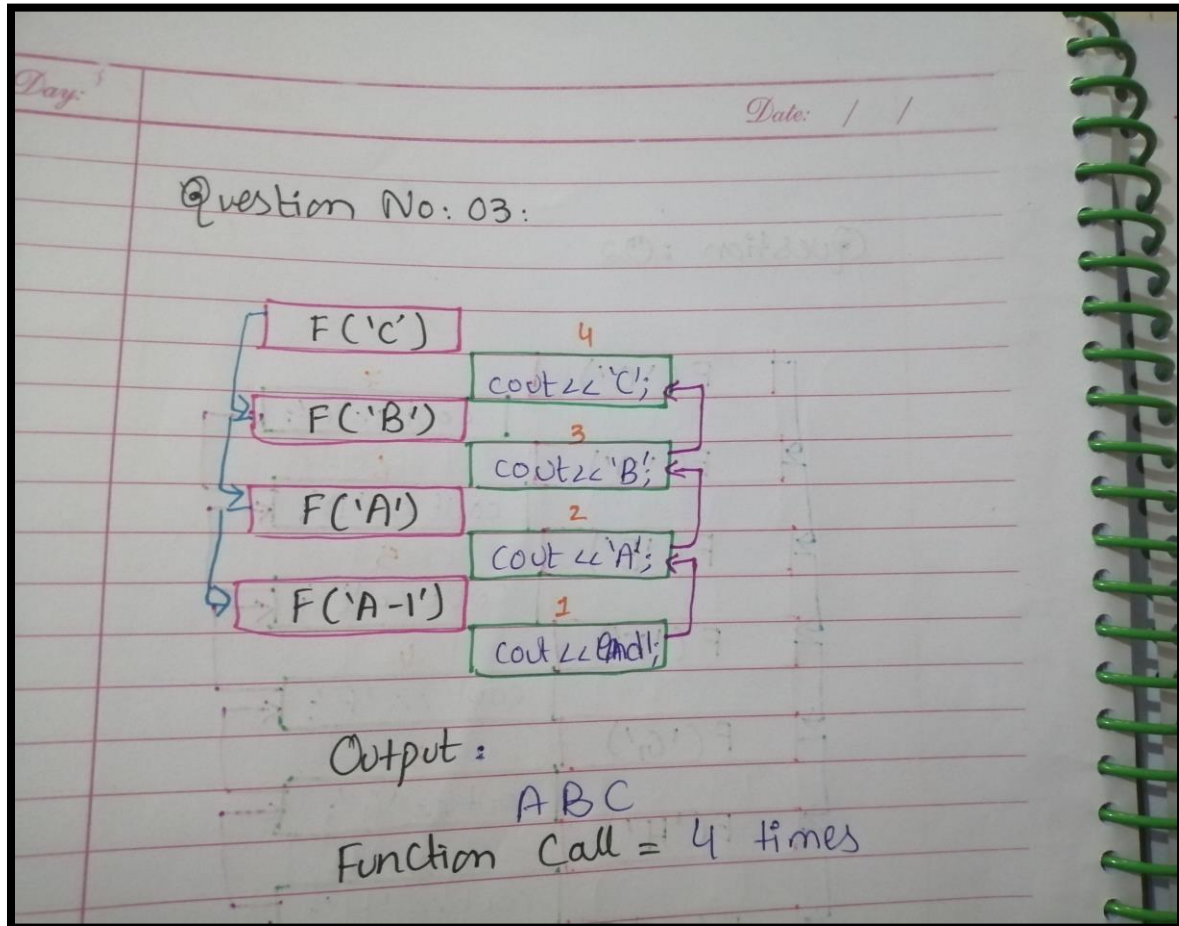 Day:
Date: / /
Question No: 03:
F('C')
4
cout<<'C';
F('B')
3
cout<<'B';
F('A')
2
cout<<'A';
F('A-1')
1
cout<<endl;
Output:
A B C
Function Call = 4 times